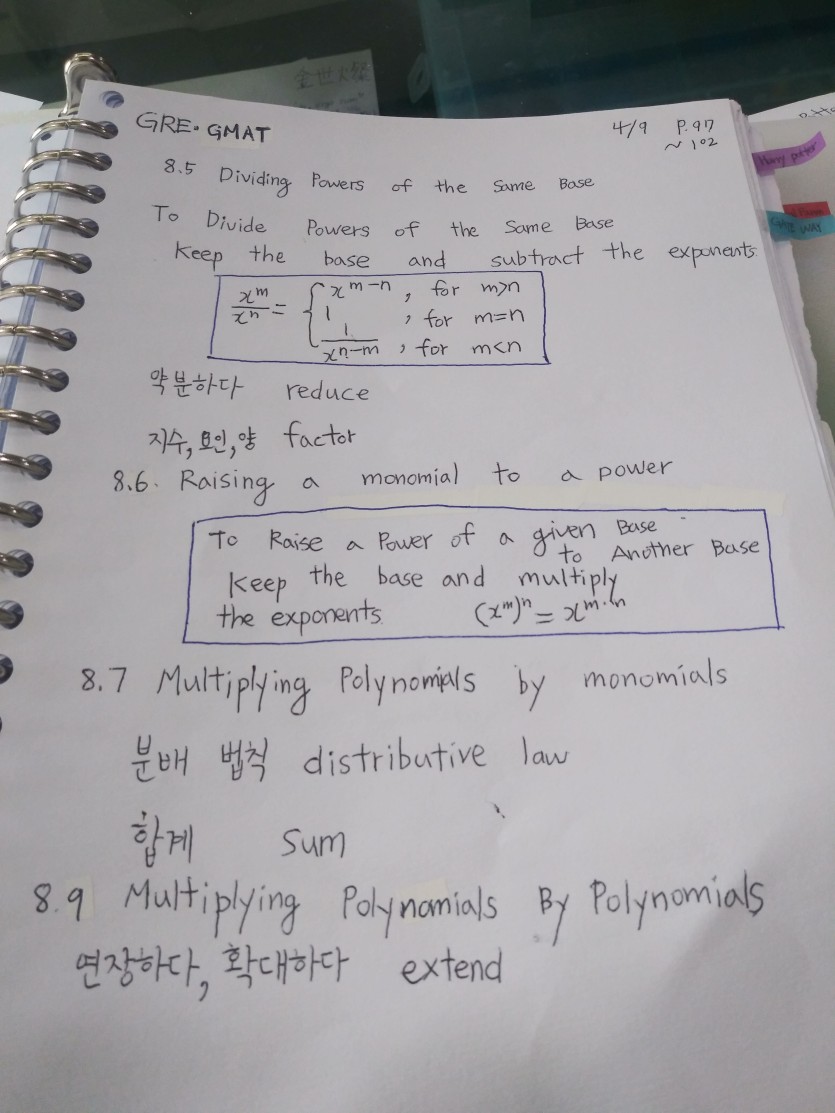 金世火
GRE. GMAT
4/9 P.97
~102
8.5 Dividing Powers of the Same Base
To Divide Powers of the Same Base
Keep the base and subtract the exponents
x^m/x^n = { x^m-n, for m>n
1, for m=n
1/x^n-m, for m<n
약분하다 reduce
지수, 요인, 양 factor
8.6. Raising a monomial to a power
To Raise a Power of a given Base
to Another Base
Keep the base and multiply
the exponents. (x^m)^n = x^m·n
8.7 Multiplying Polynomials by monomials
분배 법칙 distributive law
합계 sum
8.9 Multiplying Polynomials By Polynomials
연장하다, 확대하다 extend
Harry potter
WAY